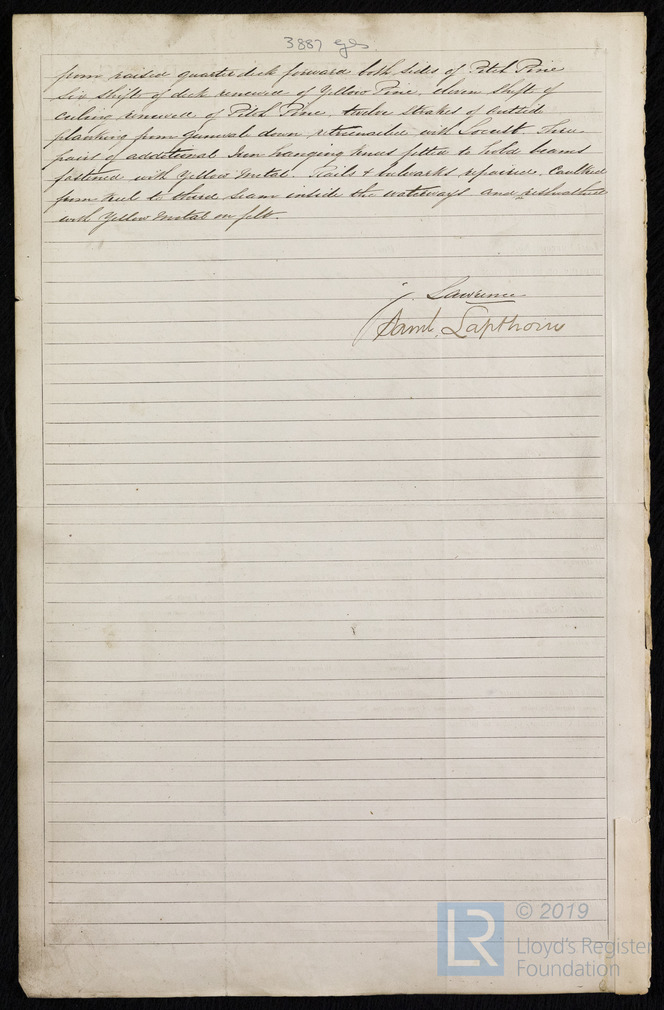 3887 gls
from raised quarter deck forward both sides of Pitch Pine
Six Shifts of deck renewed of Yellow Pine, eleven Shifts of
Ceiling renewed of Pitch Pine, twelve Strakes of outside
planking from Gunwale down, retreenailed with Locust. Three
pairs of additional Iron hanging knees fitted to hold beams
fastened with Yellow Metal. Rails & bulwarks repaired. Caulked
from keel to third seam inside the waterways and resheathed
with Yellow Metal on felt.
J. Lawrence
Saml. Lapthorn
© 2019
LR
Lloyd's Register
Foundation